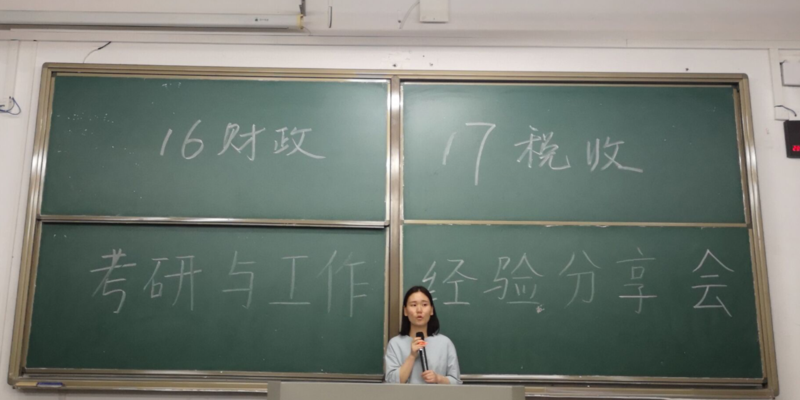 16财政 17税收
考研与工作经验分享会